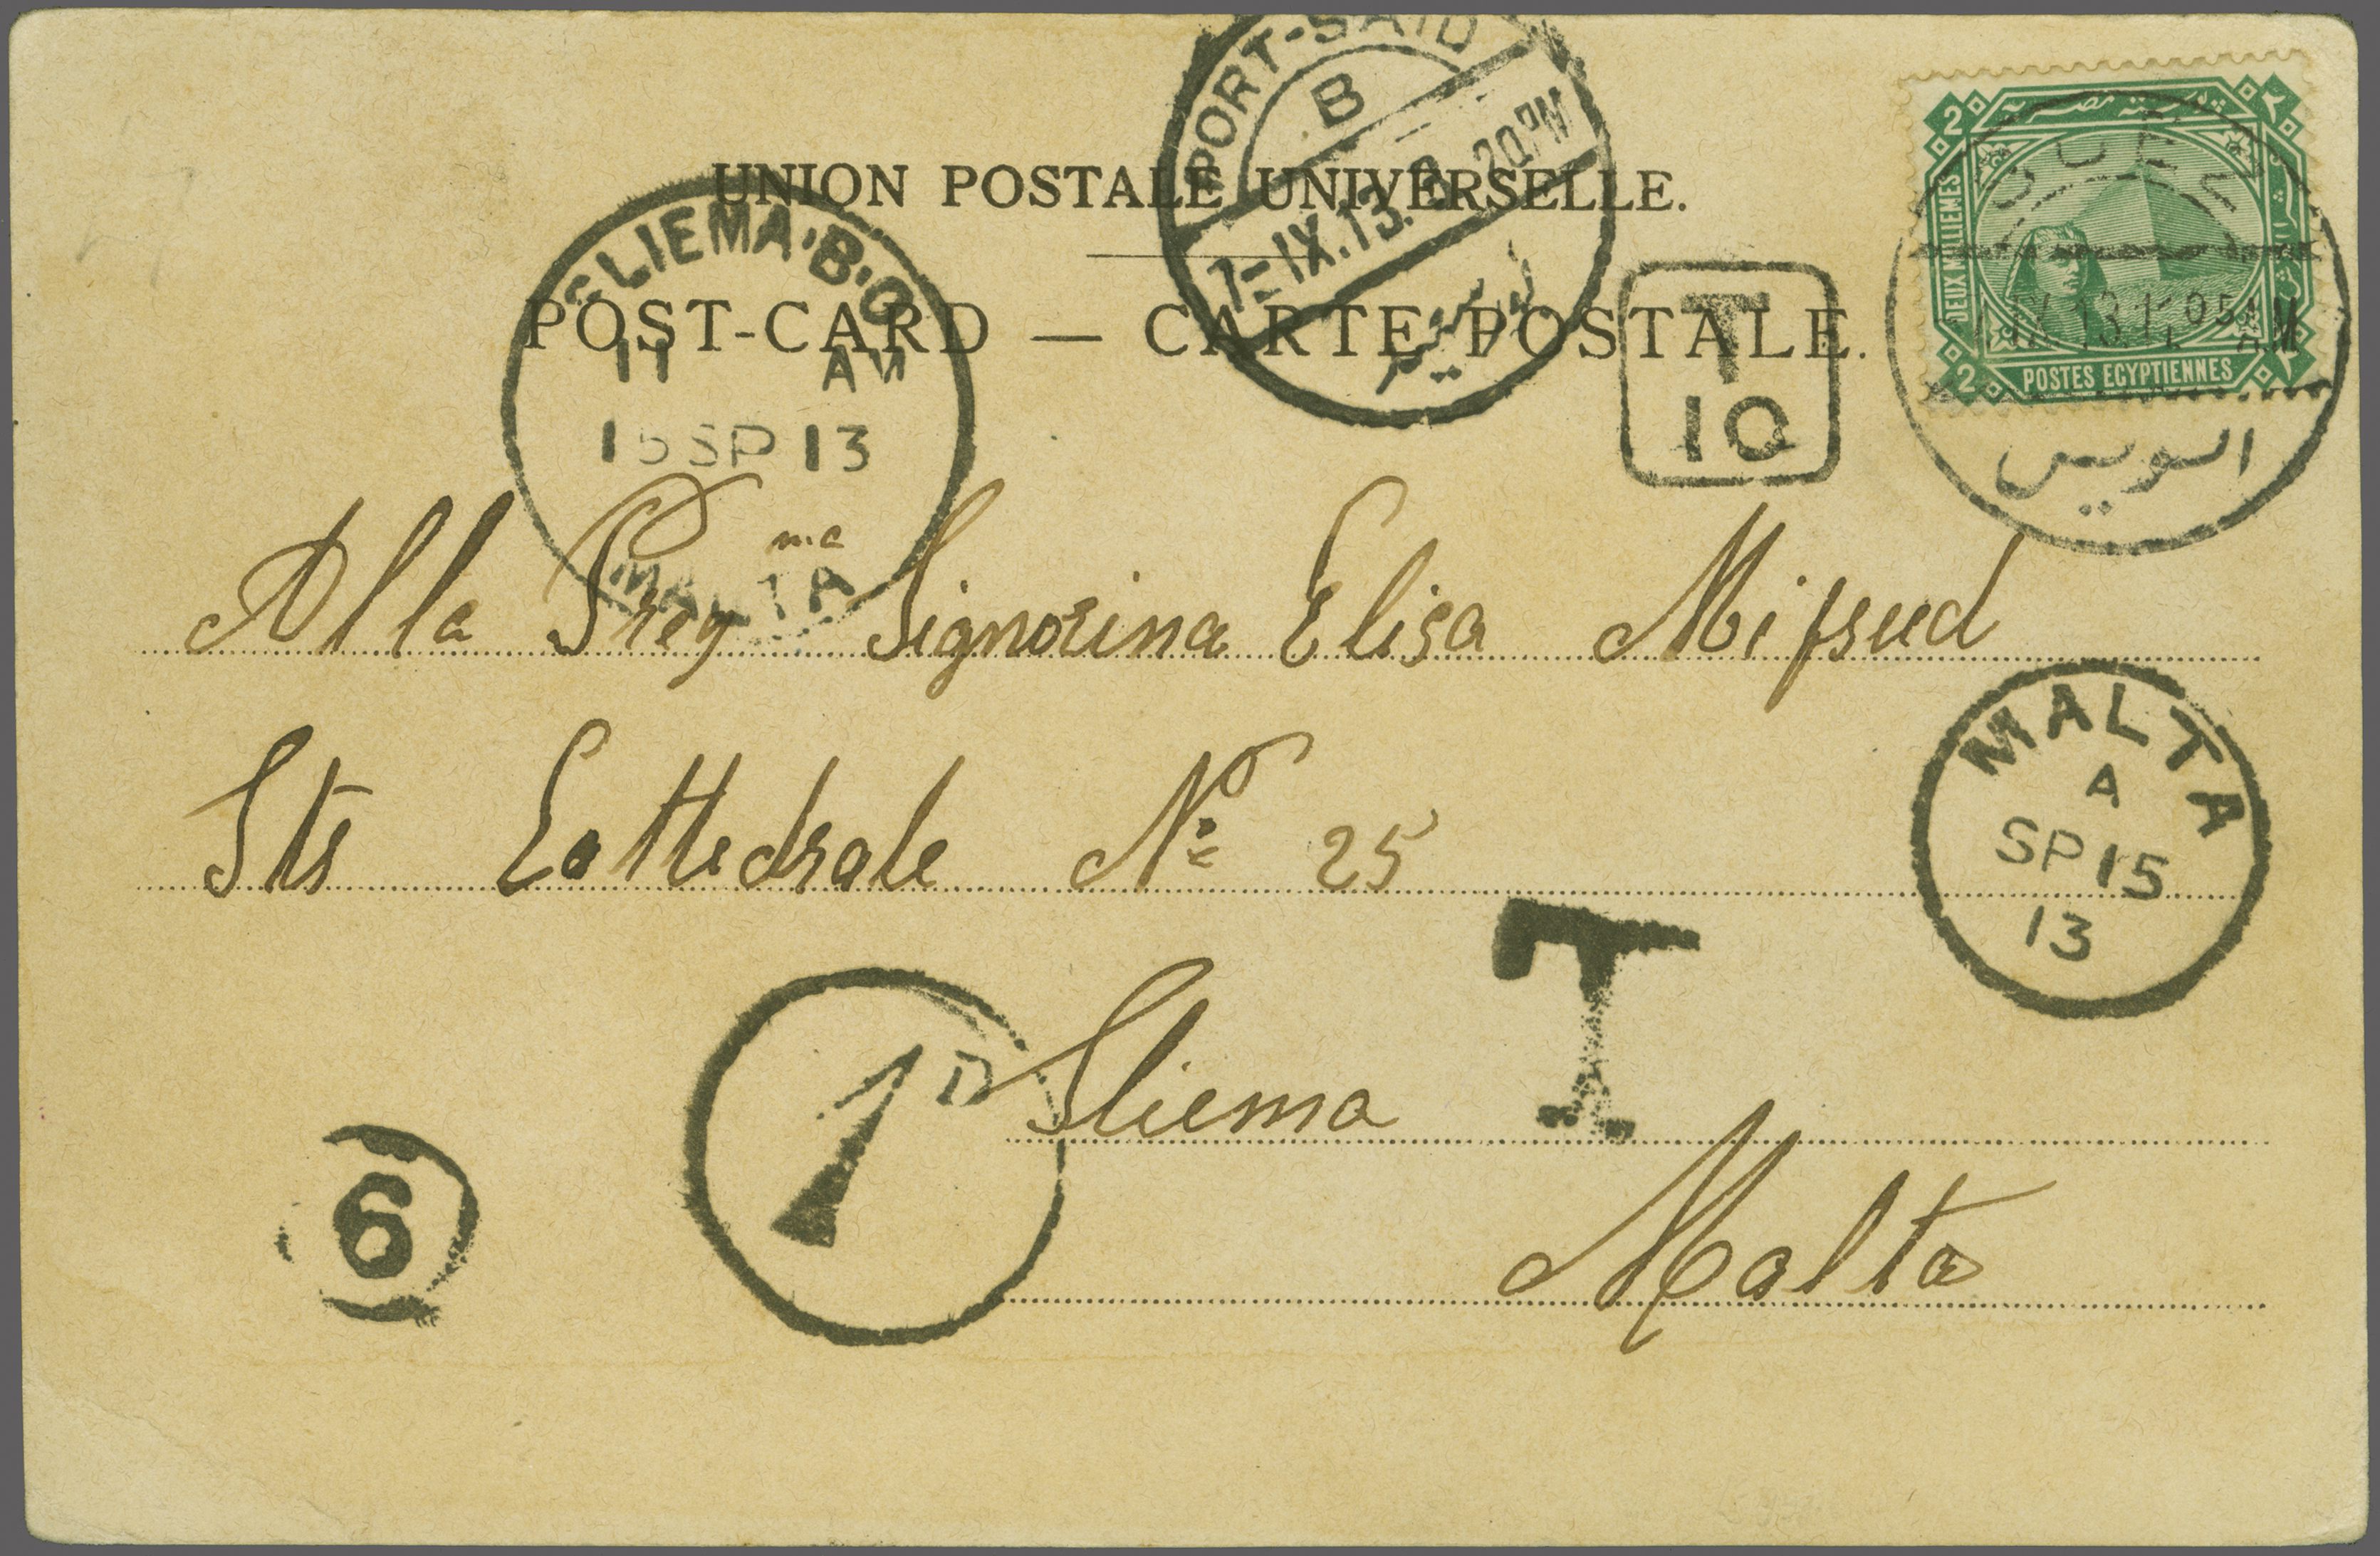 PORT-SAID
B
7-IX.13. 20PM
UNION POSTALE UNIVERSELLE.
POST-CARD — CARTE POSTALE.
SLIEMA·B·O
11 AM
15 SP 13
MALTA
T
10
2 ٢
DEUX MILLIEMES
POSTES EGYPTIENNES
2 ٢
SUEZ
IX.13.11 05 AM
السويس
Alla Preg ma Signorina Elisa Mifsud
Sts Cattedrale No 25
MALTA
A
SP 15
13
T
1D
Sliema
6
Malta